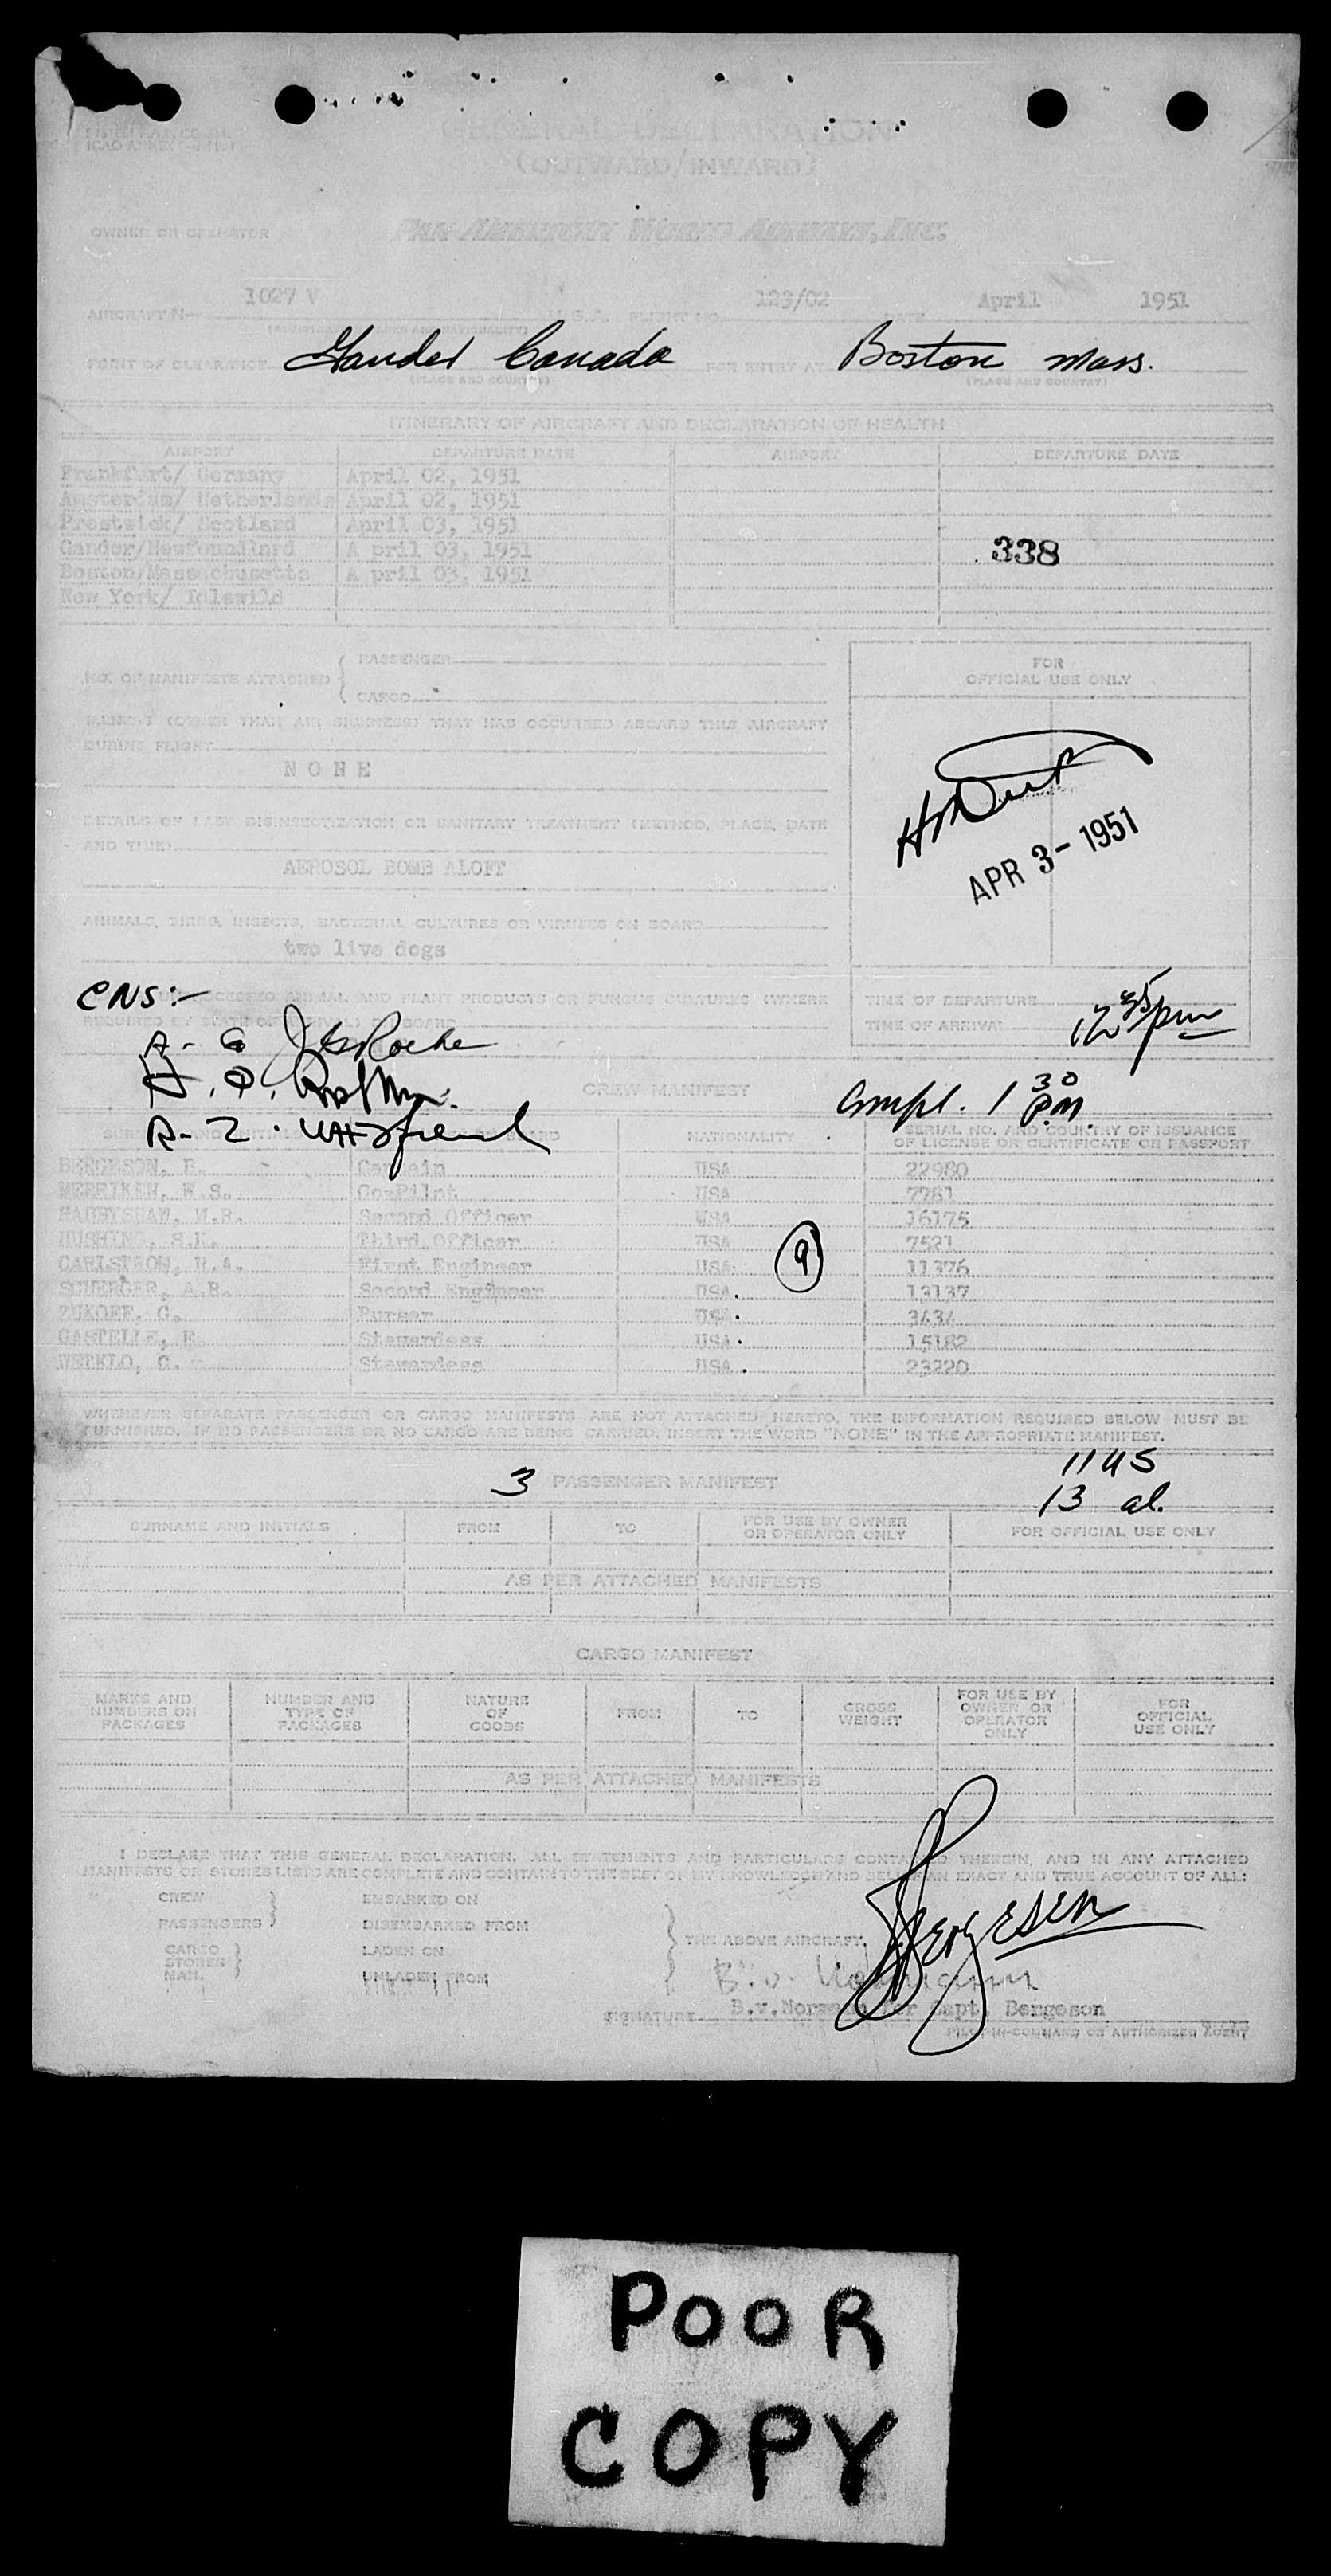 GENERAL DECLARATION
(OUTWARD/INWARD)
OWNER OR OPERATOR PAN AMERICAN WORLD AIRWAYS, INC.
AIRCRAFT N- 1027 V U.S.A. FLIGHT NO. 123/02 DATE April 1951
POINT OF CLEARANCE Gander Canada FOR ENTRY AT Boston Mass.
(PLACE AND COUNTRY) (PLACE AND COUNTRY)
ITINERARY OF AIRCRAFT AND DECLARATION OF HEALTH
AIRPORT DEPARTURE DATE AIRPORT DEPARTURE DATE
Frankfurt/ Germany April 02, 1951
Amsterdam/ Netherlands April 02, 1951
Prestwick/ Scotland April 03, 1951
Gander/Newfoundland A pril 03, 1951
338
Boston/Massachusetts A pril 03, 1951
New York/ Idlewild
NO. OF MANIFESTS ATTACHED { PASSENGER
CARGO
FOR
OFFICIAL USE ONLY
ILLNESS (OTHER THAN AIR SICKNESS) THAT HAS OCCURRED ABOARD THIS AIRCRAFT
DURING FLIGHT
NONE
DETAILS OF LAST DISINSECTIZATION OR SANITARY TREATMENT (METHOD, PLACE, DATE
AND TIME)
AEROSOL BOMB ALOFT
APR 3 - 1951
ANIMALS, BIRDS, INSECTS, BACTERIAL CULTURES OR VIRUSES ON BOARD
two live dogs
CNS:-
PROCESSED ANIMAL AND PLANT PRODUCTS OR FUNGUS CULTURES (WHERE
REQUIRED BY STATE OF ARRIVAL) ON BOARD
TIME OF DEPARTURE
TIME OF ARRIVAL 12 35 pm
CREW MANIFEST
Compl. 1 30 P.M.
SURNAME AND INITIALS NATIONALITY SERIAL NO. AND COUNTRY OF ISSUANCE
OF LICENSE OR CERTIFICATE OR PASSPORT
BERGESON, B. Captain USA 22980
MERRIKEN, W.S. Co-Pilot USA 7781
Second Officer USA 16175
S.K. Third Officer USA 7521
CARLSTROM, R.A. First Engineer USA 11376
A.B. Second Engineer USA 13137
ZUKOFF, G. Purser USA 3434
GASTELLE, E. Stewardess USA 15182
C. Stewardess USA 23220
9
WHENEVER SEPARATE PASSENGER OR CARGO MANIFESTS ARE NOT ATTACHED HERETO, THE INFORMATION REQUIRED BELOW MUST BE
FURNISHED. IF NO PASSENGERS OR NO CARGO ARE BEING CARRIED, INSERT THE WORD "NONE" IN THE APPROPRIATE MANIFEST.
3 PASSENGER MANIFEST 11 US
13 al.
SURNAME AND INITIALS FROM TO FOR USE BY OWNER
OR OPERATOR ONLY FOR OFFICIAL USE ONLY
AS PER ATTACHED MANIFESTS
CARGO MANIFEST
MARKS AND
NUMBERS ON
PACKAGES
NUMBER AND
TYPE OF
PACKAGES
NATURE
OF
GOODS
FROM
TO
GROSS
WEIGHT
FOR USE BY
OWNER OR
OPERATOR
ONLY
FOR
OFFICIAL
USE ONLY
AS PER ATTACHED MANIFESTS
I DECLARE THAT THIS GENERAL DECLARATION, ALL STATEMENTS AND PARTICULARS CONTAINED THEREIN, AND IN ANY ATTACHED
MANIFESTS OR STORES LISTS ARE COMPLETE AND CONTAIN TO THE BEST OF MY KNOWLEDGE AND BELIEF AN EXACT AND TRUE ACCOUNT OF ALL:
CREW } EMBARKED ON
PASSENGERS } DISEMBARKED FROM
THE ABOVE AIRCRAFT.
CARGO
STORES
MAIL
LADEN ON
UNLADEN FROM
Bergesen
SIGNATURE B.v.Normann for Capt. Bergeson
PILOT-IN-COMMAND OR AUTHORIZED AGENT
POOR
COPY